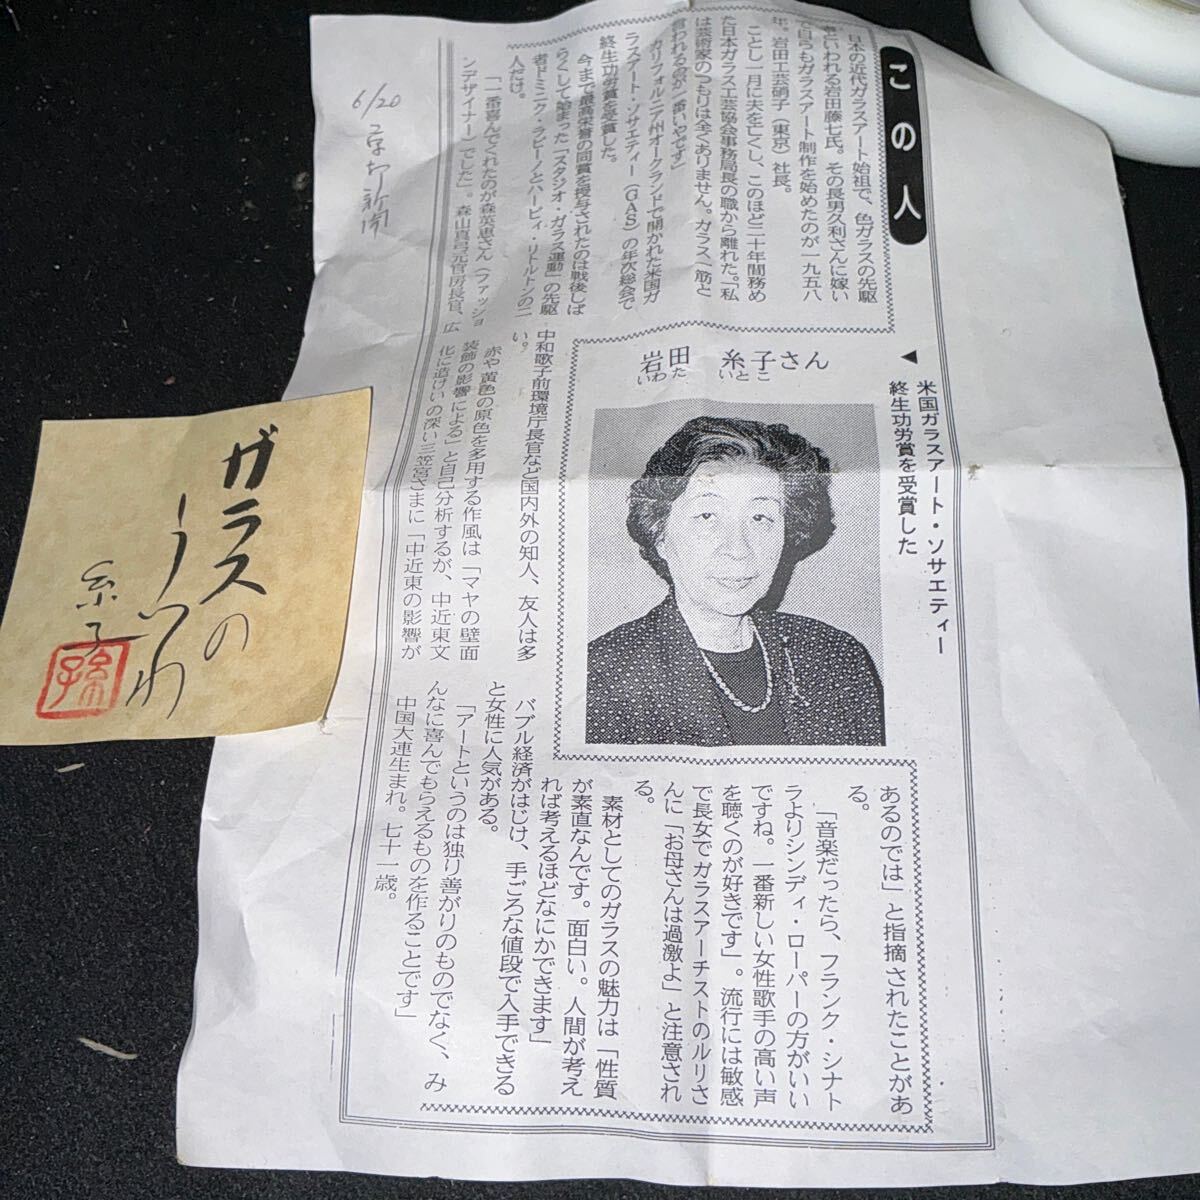 この人
日本の近代ガラスアート始祖で、色ガラスの先駆
者といわれる岩田藤七氏。その長男久利さんに嫁い
で自らもガラスアート制作を始めたのが一九五八
年。岩田工芸硝子（東京）社長。
ことし一月に夫を亡くし、このほど二十年間務め
た日本ガラス工芸協会事務局長の職から離れた。「私
は芸術家のつもりは全くありません。ガラス一筋と
言われるのが一番いやです」
カリフォルニア州オークランドで開かれた米国ガ
ラスアート・ソサエティー（GAS）の年次総会で
終生功労賞を受賞した。
今まで最高栄誉の同賞を授与されたのは戦後しば
らくして始まった「スタジオ・ガラス運動」の先駆
者ドミニク・ラビーノとハービィ・リトルトンの二
人だけ。
「一番喜んでくれたのが森英恵さん（ファッショ
ンデザイナー）でした」。森山真弓元官房長官、広
中和歌子前環境庁長官など国内外の知人、友人は多
い。
赤や黄色の原色を多用する作風は「マヤの壁面
装飾の影響による」と自己分析するが、中近東文
化に造けいの深い三笠宮さまに「中近東の影響が
あるのでは」と指摘されたことがあ
る。
「音楽だったら、フランク・シナト
ラよりシンディ・ローパーの方がいい
ですね。一番新しい女性歌手の高い声
を聴くのが好きです」。流行には敏感
で長女でガラスアーチストのルリさ
んに「お母さんは過激よ」と注意され
る。
素材としてのガラスの魅力は「性質
が素直なんです。面白い。人間が考え
れば考えるほどなにかできます」
バブル経済がはじけ、手ごろな値段で入手できる
と女性に人気がある。
「アートというのは独り善がりのものでなく、み
んなに喜んでもらえるものを作ることです」
中国大連生まれ。七十一歳。
◀米国ガラスアート・ソサエティー
終生功労賞を受賞した
岩田　糸子さん
いわた　いとこ
6/20
新聞
ガラスの
うつわ
糸子